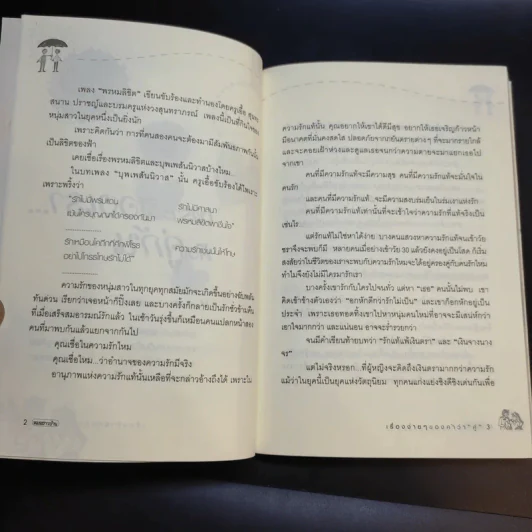 เพลง "พรหมลิขิต" เขียนขับร้องและทำนองโดยครูเอื้อ
สนาน ปราชญ์และบรมครูแห่งวงสุนทราภรณ์ เพลงนี้เป็นที่
หนุ่มสาวในยุคหนึ่งเป็นยิ่งนัก
เพราะคิดกันว่า การที่คนสองคนจะต้องมามีสัมพันธภาพกันนั้น
เป็นลิขิตของฟ้า
เคยเชื่อเรื่องพรหมลิขิตและบุพเพสันนิวาสบ้างไหม...
ในบทเพลง "บุพเพสันนิวาส" นั้น ครูเอื้อขับร้องได้ไพเราะ
เพราะพริ้งว่า
"รักไม่มีพรมแดน รักไม่มีศาสนา
แม้นใครบุญญาได้ครองกันมา พรหมลิขิตพาชื่นใจ"
รักเหมือนโคถึกที่คึกพิโรธ ความรักเช่นนั้นให้โทษ
อย่าไปโกรธโทษรักไม่ได้"
ความรักของหนุ่มสาวในทุกยุคทุกสมัยมักจะเกิดขึ้นอย่างฉับพลัน
ทันด่วน เรียกว่าเจอหน้าก็ปิ๊งเลย และบางครั้งก็กลายเป็นรักชั่วข้ามคืน
ที่เมื่อเสร็จสมอารมณ์รักแล้ว ในเช้าวันรุ่งขึ้นก็เหมือนคนแปลกหน้าสอง
คนที่มาพบกันแล้วแยกจากกันไป
คุณเชื่อในความรักไหม
คุณเชื่อไหม...ว่าอำนาจของความรักมีจริง
อานุภาพแห่งความรักแท้นั้นเหลือที่จะกล่าวอ้างถึงได้ เพราะใน
2
ความรักแท้นั้น คุณอยากให้เขาได้ดีมีสุข อยากให้เธอเจริญก้าวหน้า
มีอนาคตที่มั่นคงสดใส ปลอดภัยจากภยันตรายต่างๆ ที่จะมากรายใกล้
และจะคอยเฝ้าห่วงและดูแลเธอจนกว่าความตายจะมาแยกเธอไป
จากเขา
คนที่มีความรักแท้จะมีความสุข คนที่มีความรักแท้จะมั่นใจใน
คนรัก
และคนที่มีความรักแท้..จะมีความสงบร่มเย็นในร่มเงาแห่งรัก
คนที่มีความรักแท้เท่านั้นที่จะเข้าใจว่าความรักที่แท้จริงเป็น
เช่นไร
แต่รักแท้ไม่ใช่หาได้ง่าย บางคนแสวงหาความรักแท้จนเข้าวัย
ชราจึงจะพบก็มี หลายคนเมื่ออย่างเข้าวัย 30 แล้วยังคงอยู่เป็นโสด ก็เริ่ม
สงสัยว่าในชีวิตของเราจะพบกับความรักไหมจะได้อยู่ครองคู่กับคนรักไหม
ทำไมจึงยังไม่มีใครมารักเรา
บางครั้งเขารักกับใครไปจนทั่ว แต่หา "เธอ" คนนั้นไม่พบ เขา
คิดเข้าข้างตัวเองว่า "อกหักดีกว่ารักไม่เป็น" และเขาก็อกหักอยู่เป็น
ประจำ เพราะเธอทอดทิ้งเขาไปหาหนุ่มคนใหม่ที่อาจจะมีเสน่ห์กว่า
เขาใจมากกว่า และแน่นอน อาจจะร่ำรวยกว่า
จนมีคำเขียนท้ายบทว่า "รักแท้แพ้เงินตรา" และ "เงินจางนาง
จร"
แต่ไม่จริงหรอก...ที่ผู้หญิงจะคิดถึงเงินตรามากกว่าความรัก
แม้ว่าในยุคนี้เป็นยุคแห่งวัตถุนิยม ทุกคนแก่งแย่งชิงดีชิงเด่นกันเพื่อ
เรื่องง่ายๆของคำว่า"คู่" 3